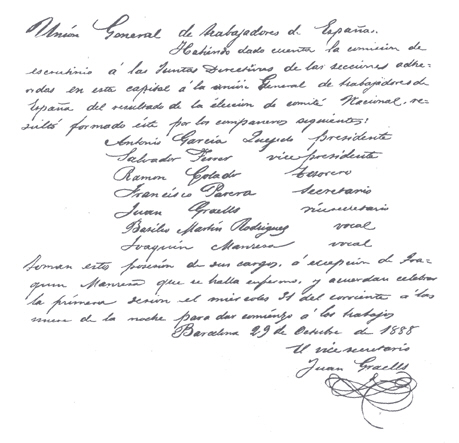 Unión General de trabajadores de España.
Habiendo dado cuenta la comision de
escrutinio á las Juntas Directivas de las secciones adhe-
ridas en esta capital á la unión General de trabajadores de
España del resultado de la elección de comité Nacional, re-
sultó formado éste por los compañeros siguientes:
Antonio García Quejido Presidente
Salvador Ferrer vicepresidente
Ramon Colado Tesorero
Francisco Parera secretario
Juan Graells vicesecretario
Basilio Martin Rodriguez vocal
Joaquin Manresa vocal
Toman estos posesión de sus cargos, á excepcion de Joa-
quin Manresa que se halla enfermo, y acuerdan celebrar
la primera sesion el miercoles 31 del corriente á las
nueve de la noche para dar comienzo á los trabajos
Barcelona 29 de Octubre de 1888
El vice secretario
Juan Graells